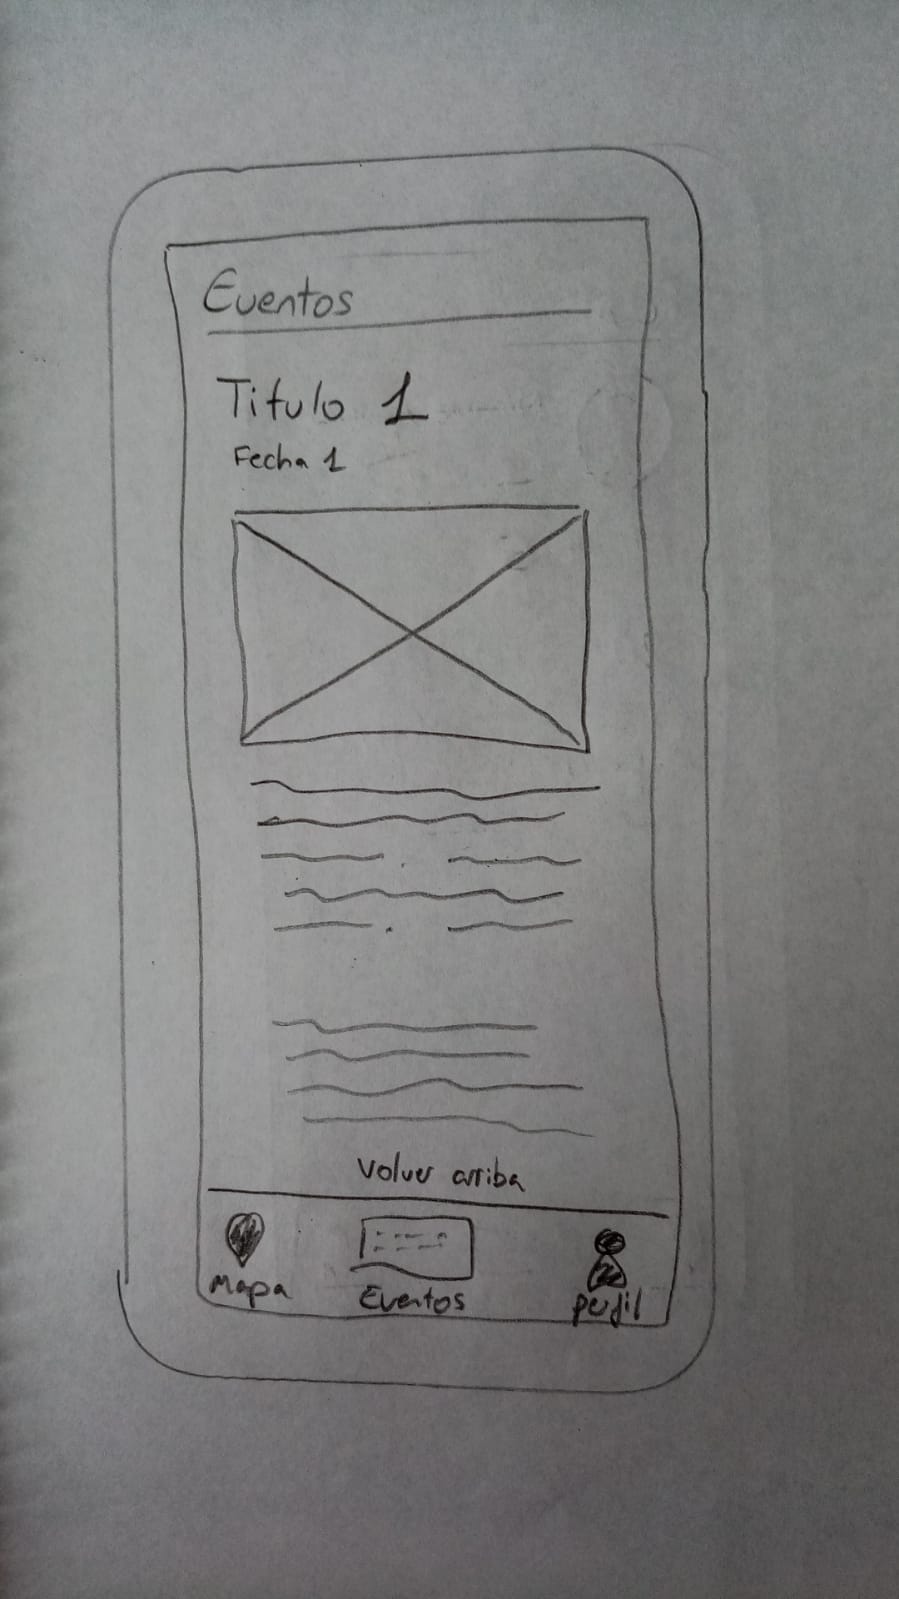 Eventos
Titulo 1
Fecha 1
Volver arriba
Mapa
Eventos
Perfil